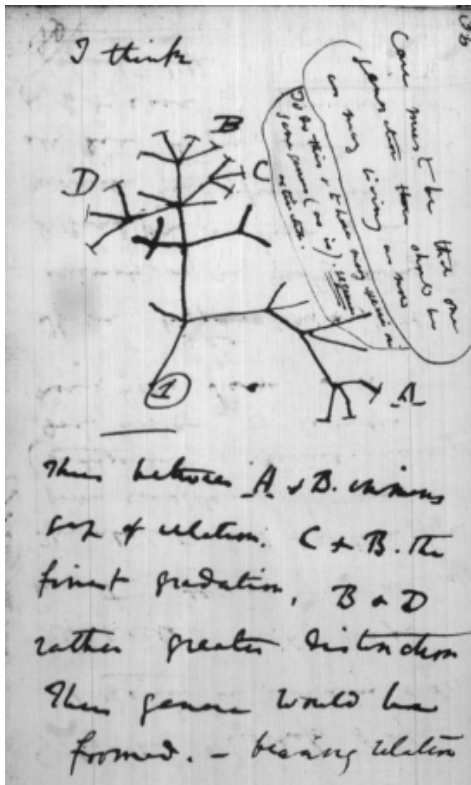 I think
B
D
C
A
1
36
Case must be that one
generation then should be
as many living as now
To do this & to have many species in
same genus (as is). requires
extinction.
Thus between A & B. immens
gap of relation. C & B. the
finest gradation, B & D
rather greater distinction
Thus genera would be
formed. — bearing relation